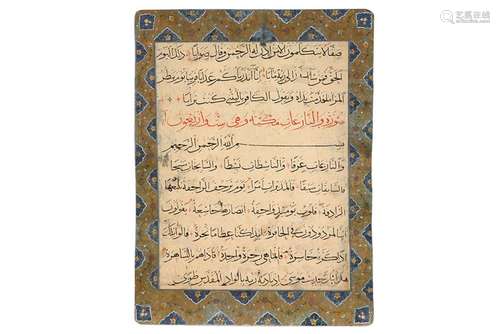 صفا لا يتكلمون الا من اذن له الرحمن وقال صوابا ذلك اليوم
الحق فمن شاء اتخذ الى ربه مآبا انا انذرناكم عذابا قريبا يوم ينظر
المرء ما قدمت يداه ويقول الكافر يا ليتنى كنت ترابا
سورة والنازعات مكية وهى ست واربعون
بسم الله الرحمن الرحيم
والنازعات غرقا والناشطات نشطا والسابحات سبحا
فالسابقات سبقا فالمدبرات امرا يوم ترجف الراجفة تتبعها
الرادفة قلوب يومئذ واجفة ابصارها خاشعة يقولون
ائنا لمردودون فى الحافرة ائذا كنا عظاما نخرة قالوا تلك
اذا كرة خاسرة فانما هى زجرة واحدة فاذاهم بالساهرة
هل اتاك حديث موسى اذ ناداه ربه بالواد المقدس طوى